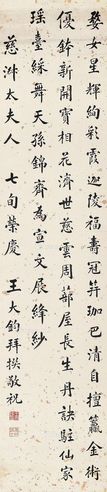 婺女星輝絢彩霞迦陵福壽冠笄珈巴清自擅籯金術
優鉢新開寶相花濟世慈雲周蔀屋長生丹訣駐仙家
瑤臺綵舞天孫錦齊為宣文展絳紗
慈 太夫人 七旬榮慶 王大鈞拜撰敬祝